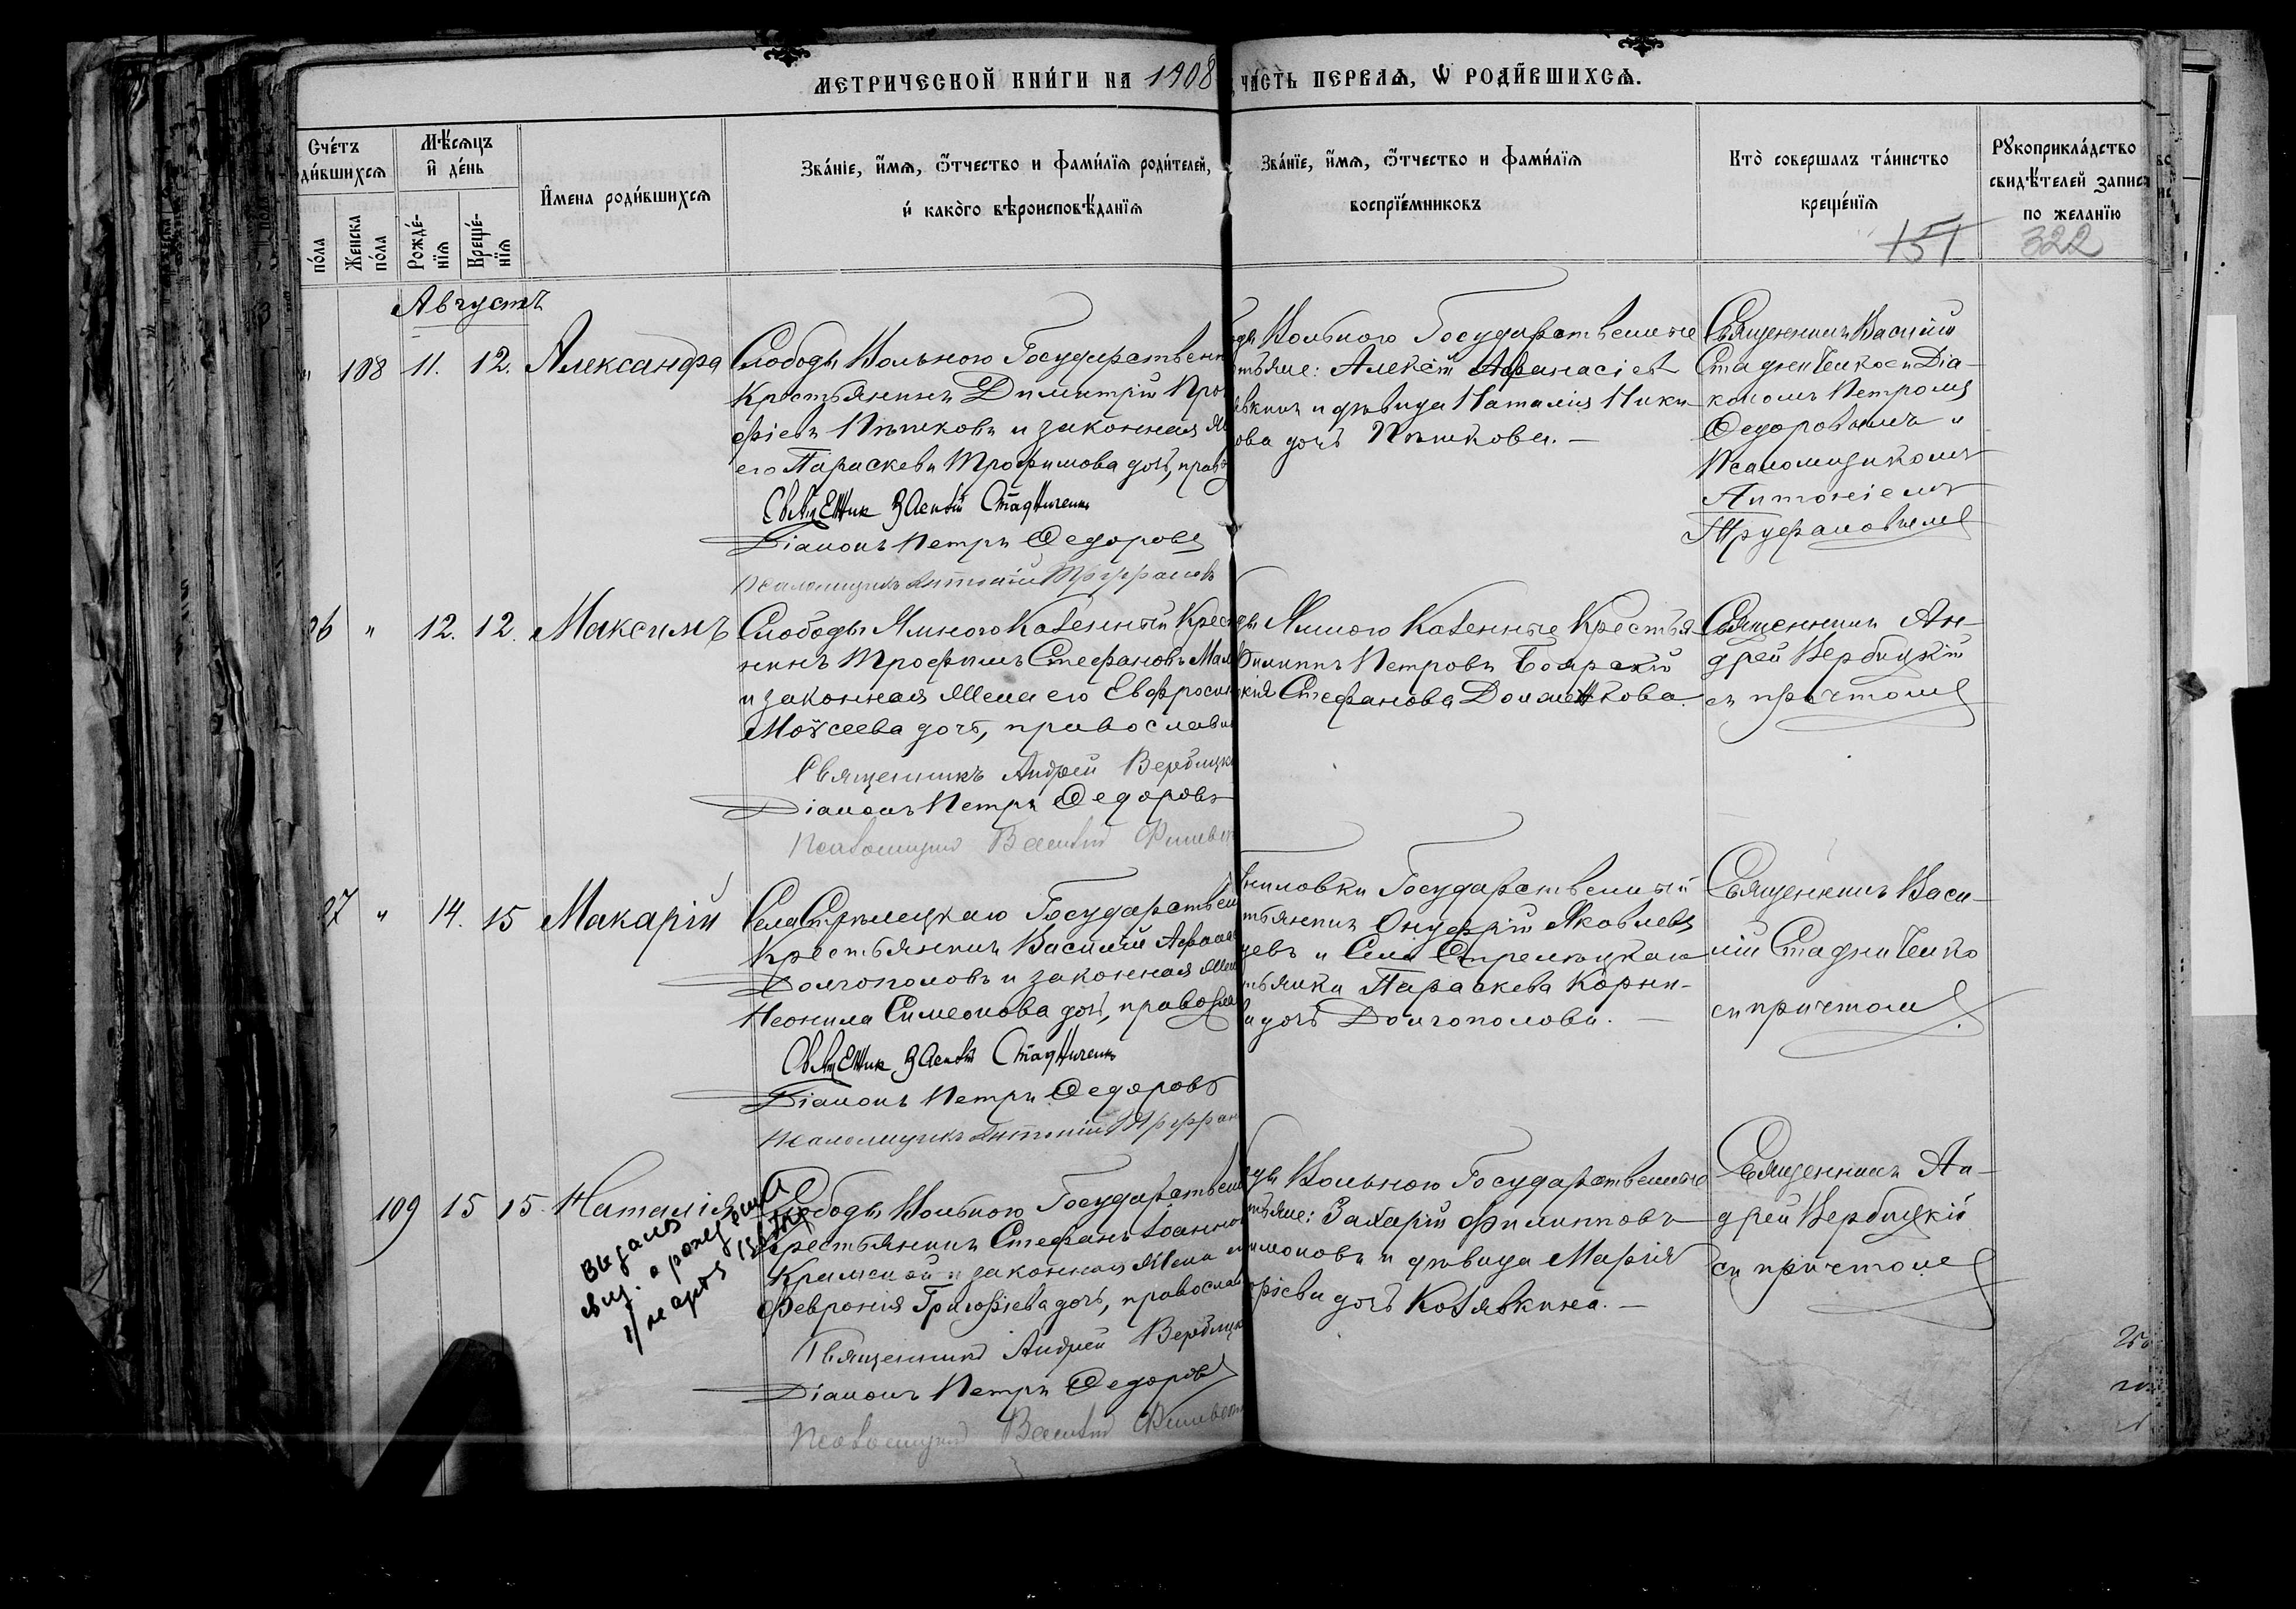 МЕТРИЧЕСКОЙ КНИ́ГИ НА 1908
ЧА́СТЬ ПЕРВАЯ, Ѡ РОДИ́ВШИХСѦ.
Сче́тъ
ди́вшихсѧ
по́ла
Женска по́ла
Мѣ́сѧцъ и҆ де́нь
Рожде́-нїѧ
Креще́-нїѧ
И҆мена роди́вшихсѧ
Зва́нїе, и҆́мѧ, ѻ҆́тчество и фами́лїѧ роди́телей,
и҆ како́гѡ вѣроисповѣ́данїѧ
Зва́нїе, и҆́мѧ, ѻ҆́тчество и фами́лїѧ
воспрїе́мниковъ
Кто̀ совершалъ та́инство
креще́нїѧ
Рꙋкоприкла́дство
свидѣ́телей записи
по жела́нїю
151
322
Августъ
" 108 11. 12. Александра
Слободы Вольного Государственн
Крестьянинъ Димитрій Про
фіевъ Пѣшковъ и законная
его Параскева Трофимова дочь, прав
Священик Василій Стадниченк
Діаконъ Петръ Ѳедоровъ
Псаломщикъ Антоній Труфановъ
ды Вольного Государственные
тьяне: Алексѣй Афанасіевъ
вкинъ и дѣвица Наталія Ники
ова дочь Пѣшкова.—
Священникъ Василій
Стадниченко съ Діа-
кономъ Петромъ
Ѳедоровымъ и
Псаломщикомъ
Антоніемъ
Труфановымъ
26 " 12. 12. Максимъ
Слободы Ямного Казенный Крест
нинъ Трофимъ Стефановъ Мал
и законная жена его Евфросин
Моѵсеева дочь, православн
Священникъ Андрей Вербицк
Діаконъ Петръ Ѳедоровъ
Псаломщикъ Василій
ды Ямного Казенные Крестья
Филиппъ Петровъ Боярскій
кія Стефанова Доменкова.
Священникъ Ан-
дрей Вербицкій
съ причтомъ
27 " 14. 15 Макарій
Села Стрѣлецкаго Государствен
Крестьянинъ Василій Афанас
Долгополовъ и законная жен
Неонила Симеонова дочь, правосла
Священик Василій Стадниченк
Діаконъ Петръ Ѳедоровъ
Псаломщикъ Антоній Труфан
ниловки Государственный
тьянинъ Онуфрій Яковлевъ
цевъ и Села Стрелецкаго
тьянка Параскева Корни-
а дочь Долгополова.—
Священникъ Васи-
лій Стадниченко
съ причтомъ
109 15 15 Наталія
Слободы Вольного Государствен
Крестьянинъ Стефанъ Іоанно
Крамской и законная жена е
Феврония Григоріева дочь, правосла
Священникъ Андрей Вербицк
Діаконъ Петръ Ѳедоровъ
Псаломщикъ Василій
ды Вольного Государственные
тьяне: Захарій Филипповъ
имоновъ и дѣвица Марія
оріева дочь Козявкина.—
Священникъ Ан-
дрей Вербицкій
съ причтомъ
выдано
свид. о рождении